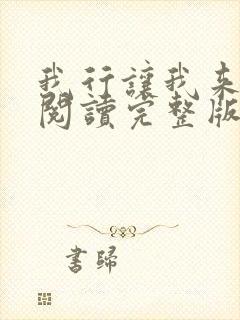 我行讓我來
閱讀完整版
書歸